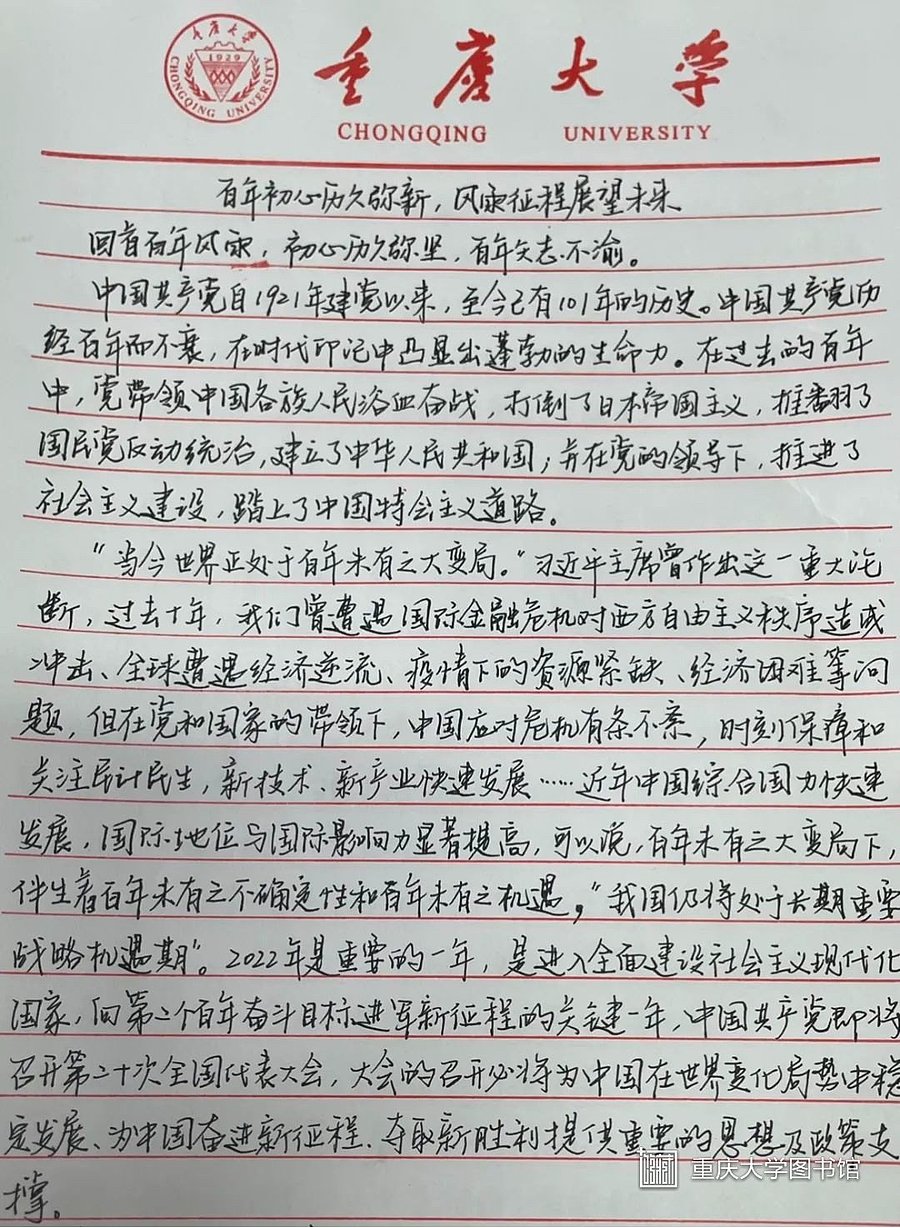 重庆大学
1929
CHONGQING UNIVERSITY
重庆大学
CHONGQING UNIVERSITY
百年初心历久弥新，风雨征程展望未来
回首百年风雨，初心历久弥坚，百年矢志不渝。
中国共产党自1921年建党以来，至今已有101年的历史。中国共产党历
经百年而不衰，在时代印记中凸显出蓬勃的生命力。在过去的百年
中，党带领中国各族人民浴血奋战，打倒了日本帝国主义，推翻了
国民党反动统治，建立了中华人民共和国；并在党的领导下，推进了
社会主义建设，踏上了中国特会主义道路。
“当今世界正处于百年未有之大变局。”习近平主席曾作出这一重大论
断，过去十年，我们曾遭遇国际金融危机对西方自由主义秩序造成
冲击、全球遭遇经济逆流、疫情下的资源紧缺、经济困难等问
题，但在党和国家的带领下，中国应对危机有条不紊，时刻保障和
关注民计民生，新技术、新产业快速发展……近年中国综合国力快速
发展，国际地位与国际影响力显著提高，可以说，百年未有之大变局下，
伴生着百年未有之不确定性和百年未有之机遇，“我国仍将处于长期重要
战略机遇期”。2022年是重要的一年，是进入全面建设社会主义现代化
国家，向第二个百年奋斗目标进军新征程的关键一年，中国共产党即将
召开第二十次全国代表大会，大会的召开必将为中国在世界变化局势中稳
定发展、为中国奋进新征程、夺取新胜利提供重要的思想及政策支
撑。
重庆大学图书馆